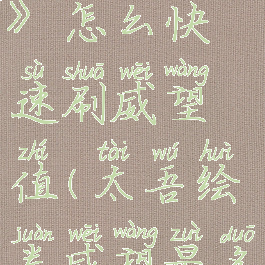 》怎么快
sù shuā wēi wàng
速刷威望
zhí tài wú huì
值(太吾绘
juàn wēi wàng zuì duō
卷威望最多